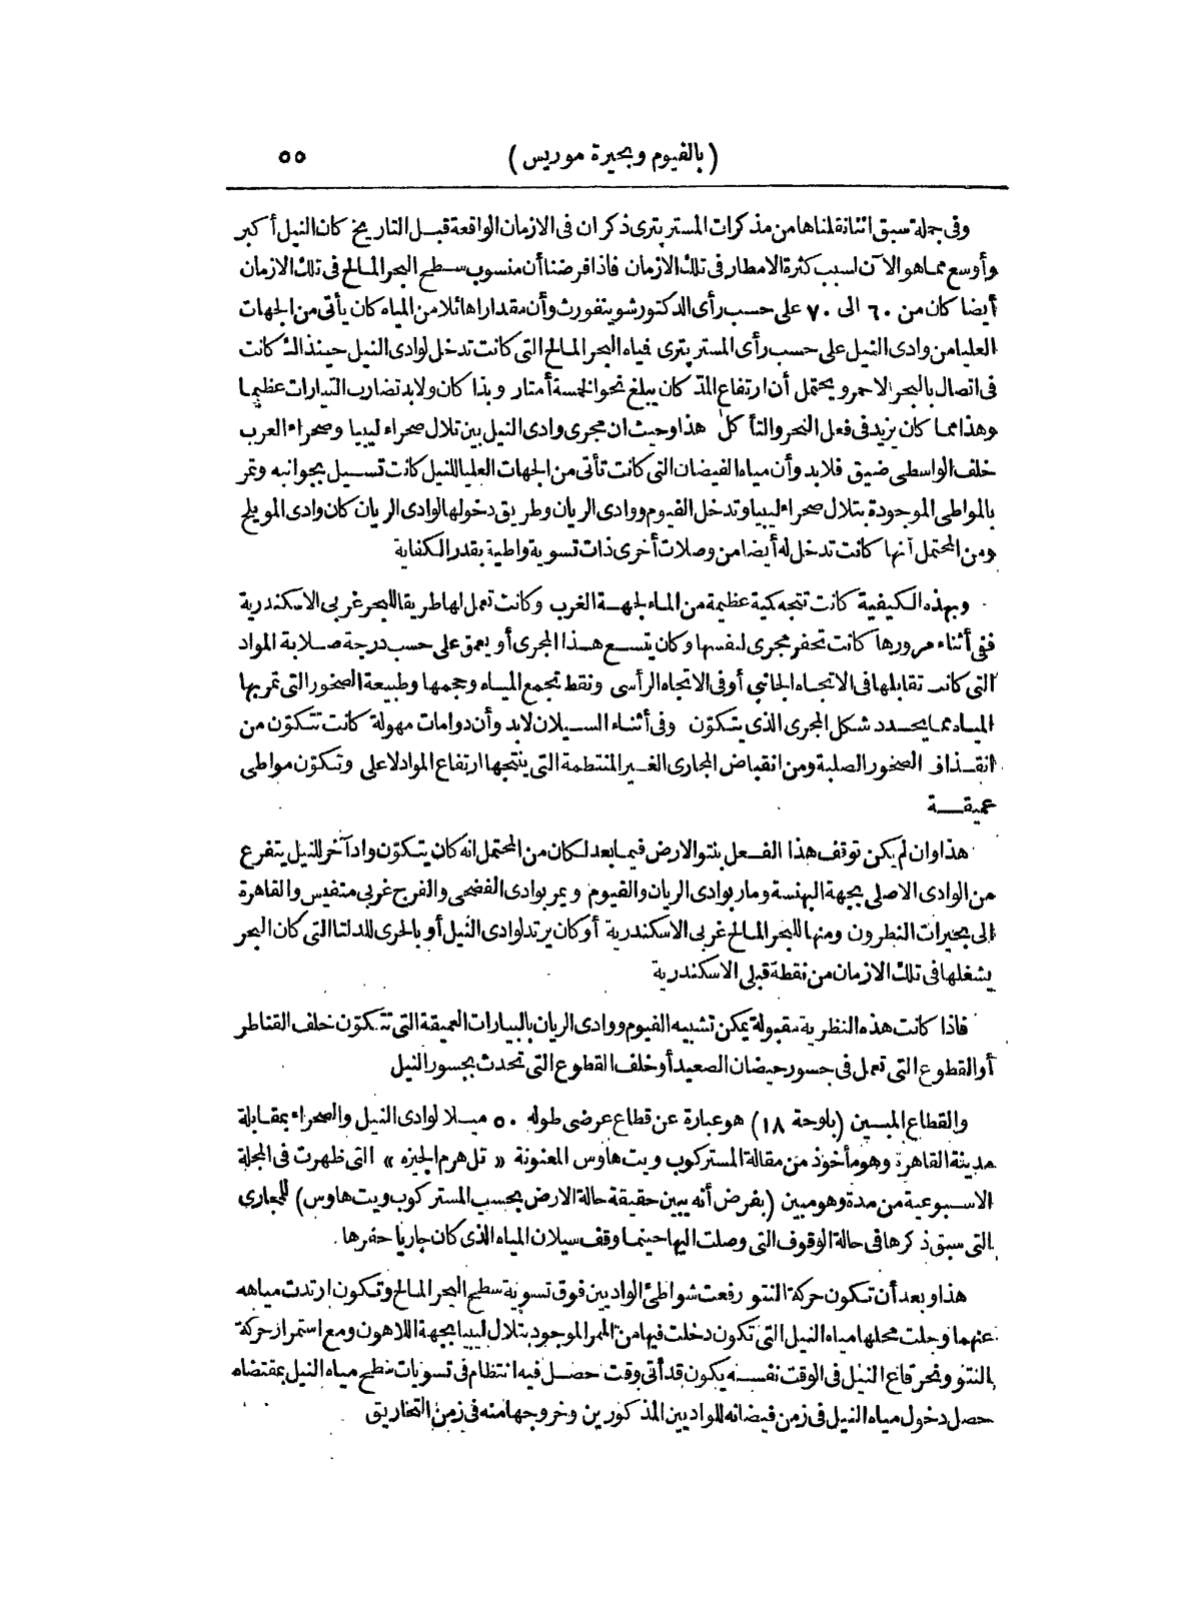 (بالفيوم وبحيرة موريس) ٥٥
وفى جملة سبق اثنانقلناها من مذكرات المستر پترى ذكر ان فى الازمان الواقعة قبل التاريخ كان النيل أكبر
وأوسع مما هو الآن لسبب كثرة الامطار فى تلك الازمان فاذا فرضنا أن منسوب سطح البحر المالح فى تلك الازمان
أيضا كان من ٦٠ الى ٧٠ على حسب رأى الدكتور شوينفورث وأن مقدارا هائلا من المياه كان يأتى من الجهات
العليا من وادى النيل على حسب رأى المستر پترى فياه البحر المالح التى كانت تدخل لوادى النيل حينذاك كانت
فى اتصال بالبحر الاحمر ويحتمل أن ارتفاع المدّ كان يبلغ نحو الخمسة أمتار وبذا كان ولابد تضارب التيارات عظيما
وهذا مما كان يزيد فى فعل النحر والتأكل هذا وحيث ان مجرى وادى النيل بين تلال صحراء ليبيا وصحراء العرب
خلف الواسطى ضيق فلابد وأن مياه الفيضان التى كانت تأتى من الجهات العليا للنيل كانت تسيل بجوانبه وتمر
بالمواطى الموجودة بتلال صحراء ليبيا وتدخل الفيوم ووادى الريان وطريق دخولها لوادى الريان كان وادى المويلح
ومن المحتمل أنها كانت تدخل له أيضا من وصلات أخرى ذات تسوية واطية بقدر الكفاية
وبهذه الكيفية كانت تتجه كمية عظيمة من الماء لجهة الغرب وكانت تعمل لها طريقا للبحر غربى الاسكندرية
ففى أثناء مرورها كانت تحفر مجرى لنفسها وكان يتسع هذا المجرى أو يعمق على حسب درجة صلابة المواد
التى كانت تقابلها فى الاتجاه الجانبى أو فى الاتجاه الرأسى ونقط تجمع المياه وحجمها وطبيعة الصخور التى تمر بها
المياه مما يحدد شكل المجرى الذى يتكوّن وفى أثناء السيلان لابد وأن دوامات مهولة كانت تتكوّن من
انقذاف الصخور الصلبة ومن انقباض المجارى الغير المنتظمة التى ينتجها ارتفاع المواد لاعلى وتكوّن مواطى
عميقة
هذا وان لم يكن توقف هذا الفعل بنتو الارض فيما بعد لكان من المحتمل انه كان يتكوّن واد آخر للنيل يتفرع
من الوادى الاصلى بجهة البهنسة ومار بوادى الريان والفيوم ويمر بوادى الفضحى والفرج غربى منفيس والقاهرة
الى بحيرات النطرون ومنها للبحر المالح غربى الاسكندرية أو كان يرتد لوادى النيل أو بالحرى للدلتا التى كان البحر
يشغلها فى تلك الازمان من نقطة قبلى الاسكندرية
فاذا كانت هذه النظرية مقبولة يمكن تشبيه الفيوم ووادى الريان بالبيارات العميقة التى تتكوّن خلف القناطر
أو القطوع التى تعمل فى جسور حيضان الصعيد أو خلف القطوع التى تحدث بجسور النيل
والقطاع المبين (بلوحة ١٨) هو عبارة عن قطاع عرضى طوله ٥٠ ميلا لوادى النيل والصحراء بمقابلة
مدينة القاهرة وهو مأخوذ من مقالة المستر كوب ويت هاوس المعنونة « تل هرم الجيزه » التى ظهرت فى المجلة
الاسبوعية من مدة وهو مبين (بفرض أنه يبين حقيقة حالة الارض بحسب المستر كوب ويت هاوس) للمجارى
التى سبق ذكرها فى حالة الوقوف التى وصلت اليها حينما وقف سيلان المياه الذى كان جاريا حفرها.
هذا وبعد أن تكون حركة النتو رفعت شواطئ الواديين فوق تسوية سطح البحر المالح وتكون ارتدت مياهه
عنهما وحلت محلها مياه النيل التى تكون دخلت فيها من الممر الموجود بتلال ليبيا بجهة اللاهون ومع استمرار حركة
النتو ونحر قاع النيل فى الوقت نفسه يكون قد أتى وقت حصل فيه انتظام فى تسويات سطح مياه النيل بمقتضاه
حصل دخول مياه النيل فى زمن فيضانه للواديين المذكورين وخروجها منه فى زمن التحاريق